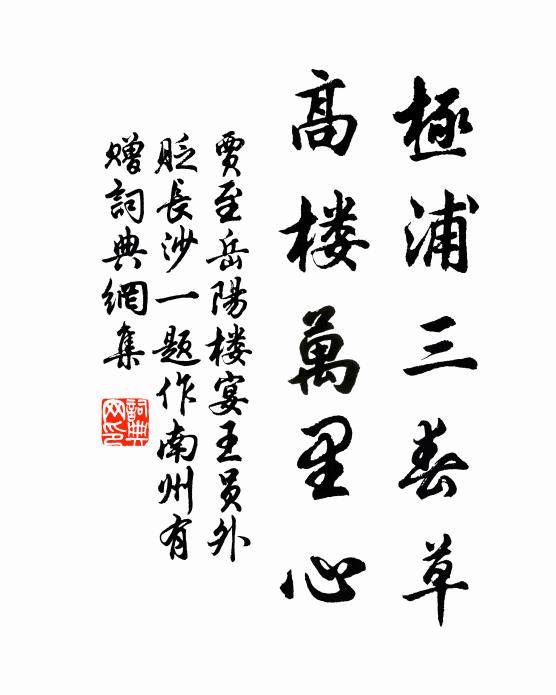 極浦三春草
高楼萬里心
賈至岳陽楼宴王員外
貶長沙一题作南州有
赠詞典網集
詞典
网印